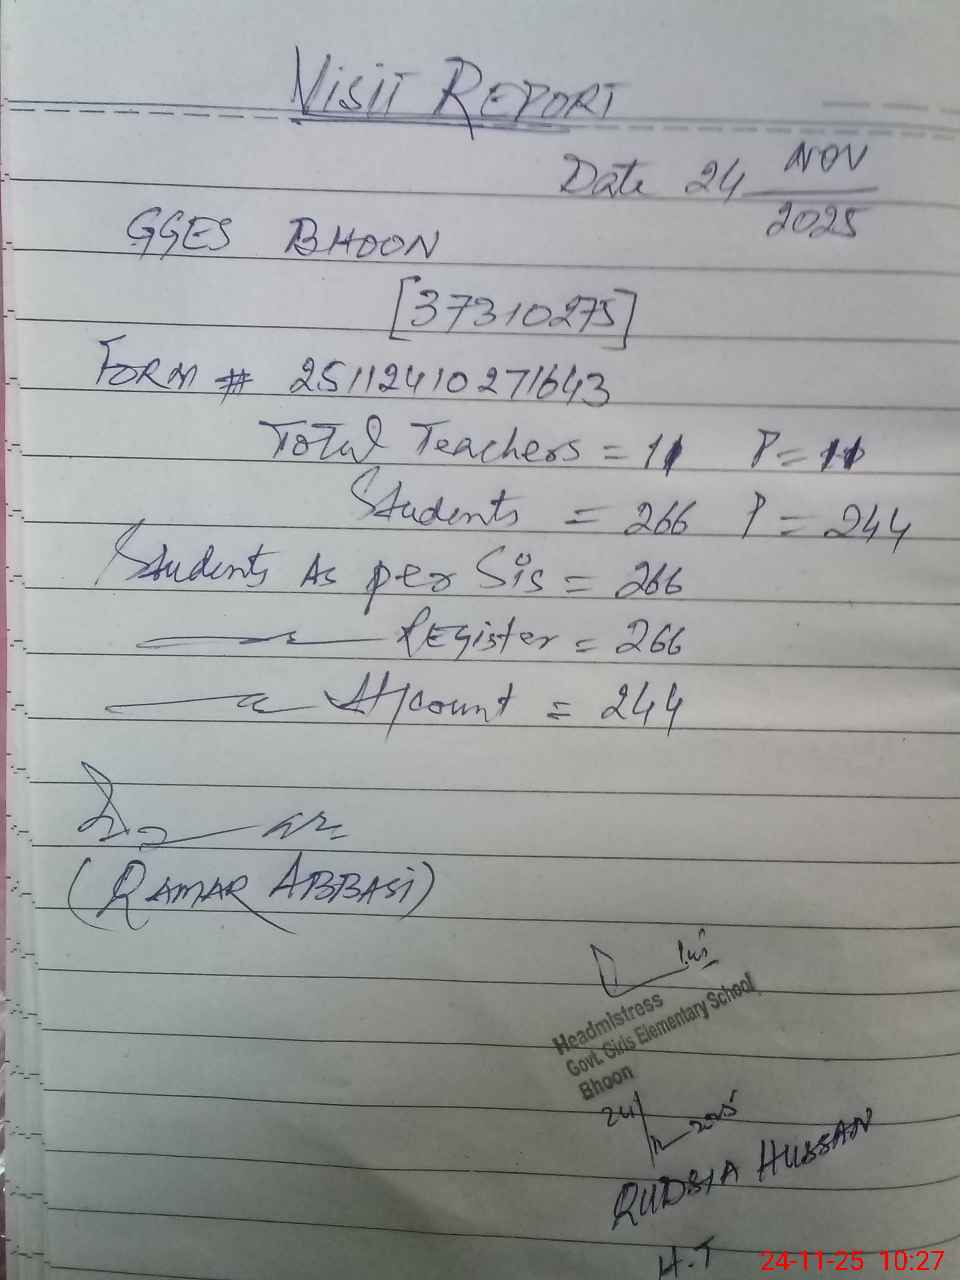 VISIT REPORT
Date 24 NOV
2025
GGES BHOON
[37310275]
FORM # 25112410271643
Total Teachers = 11 P = 11
Students = 266 P = 244
Students As per Sis = 266
Register = 266
H/count = 244
(QAMAR ABBASI)
Headmistress
Govt. Girls Elementary School
Bhoon
24
11 2025
QUDSIA HUSSAN
H.T
24-11-25 10:27